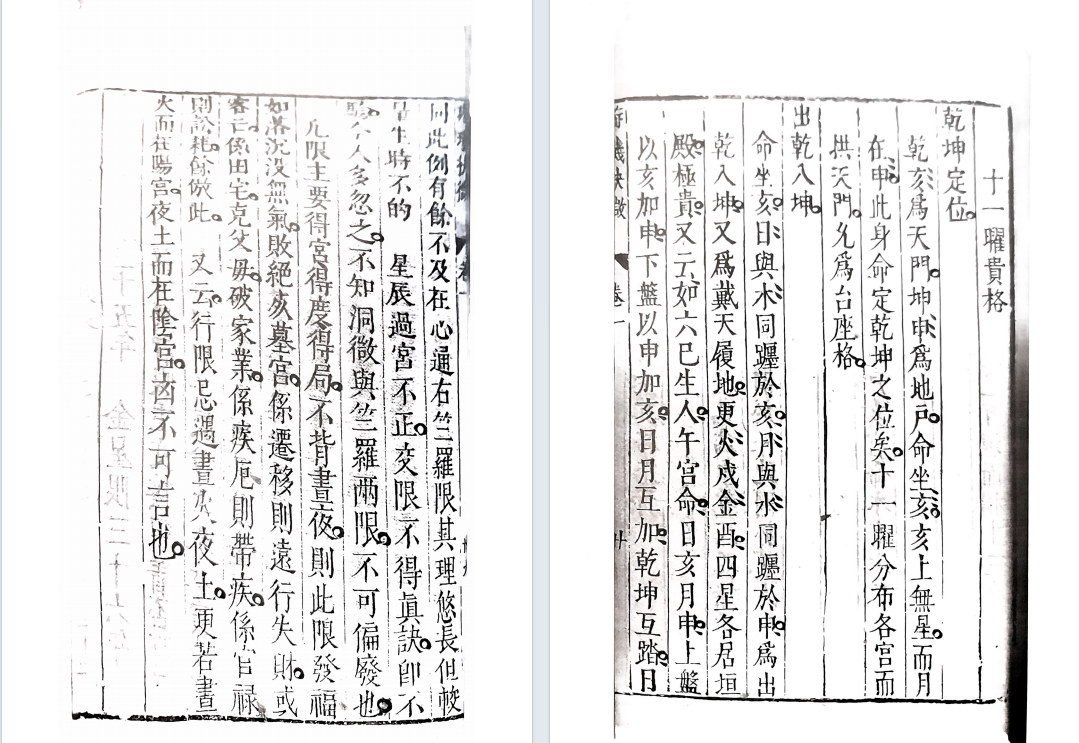 同此例有餘不及在心通右竺羅限其理悠長但較
生時不的　星辰過宮不正交限不得真訣卽不
驗人多忽之不知洞微與竺羅兩限不可偏廢也
凡限主要得宮得度得局不背晝夜則此限發福
如落沉没無氣敗絕亥墓宮係遷移則遠行失財或
客亡係田宅克父毋破家業係疾厄則帶疾係官禄
則訟耗餘倣此　又云行限忌遇晝火夜土更若晝
火而在陽宮夜土而在陰宮凶不可言也
十一曜貴格
乾坤定位
乾亥為天門坤申為地戸命坐亥亥上無星而月
在申此身命定乾坤之位矣十一曜分布各宮而
拱天門尤為台座格
出乾入坤
命坐亥日與木同躔於亥月與水同躔於申為出
乾入坤又為戴天履地更火戌金酉四星各居垣
殿極貴又云如六巳生人午宮命日亥月申上盤
以亥加申下盤以申加亥日月互加乾坤互踏日
卷一
廿